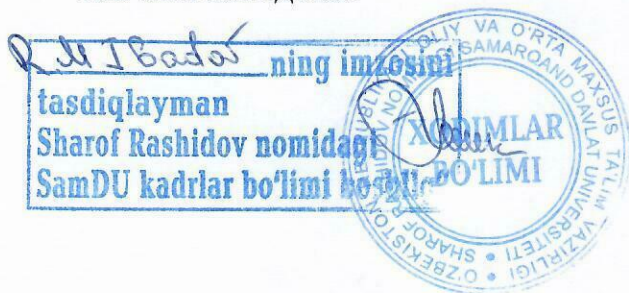 R.M Ibadov ning imzosini
tasdiqlayman
Sharof Rashidov nomidagi
SamDU kadrlar bo'limi
O'ZBEKISTON RESPUBLIKASI OLIY VA O'RTA MAXSUS TA'LIM VAZIRLIGI
SHAROF RASHIDOV NOMIDAGI SAMARQAND DAVLAT UNIVERSITETI
XODIMLAR
BO'LIMI